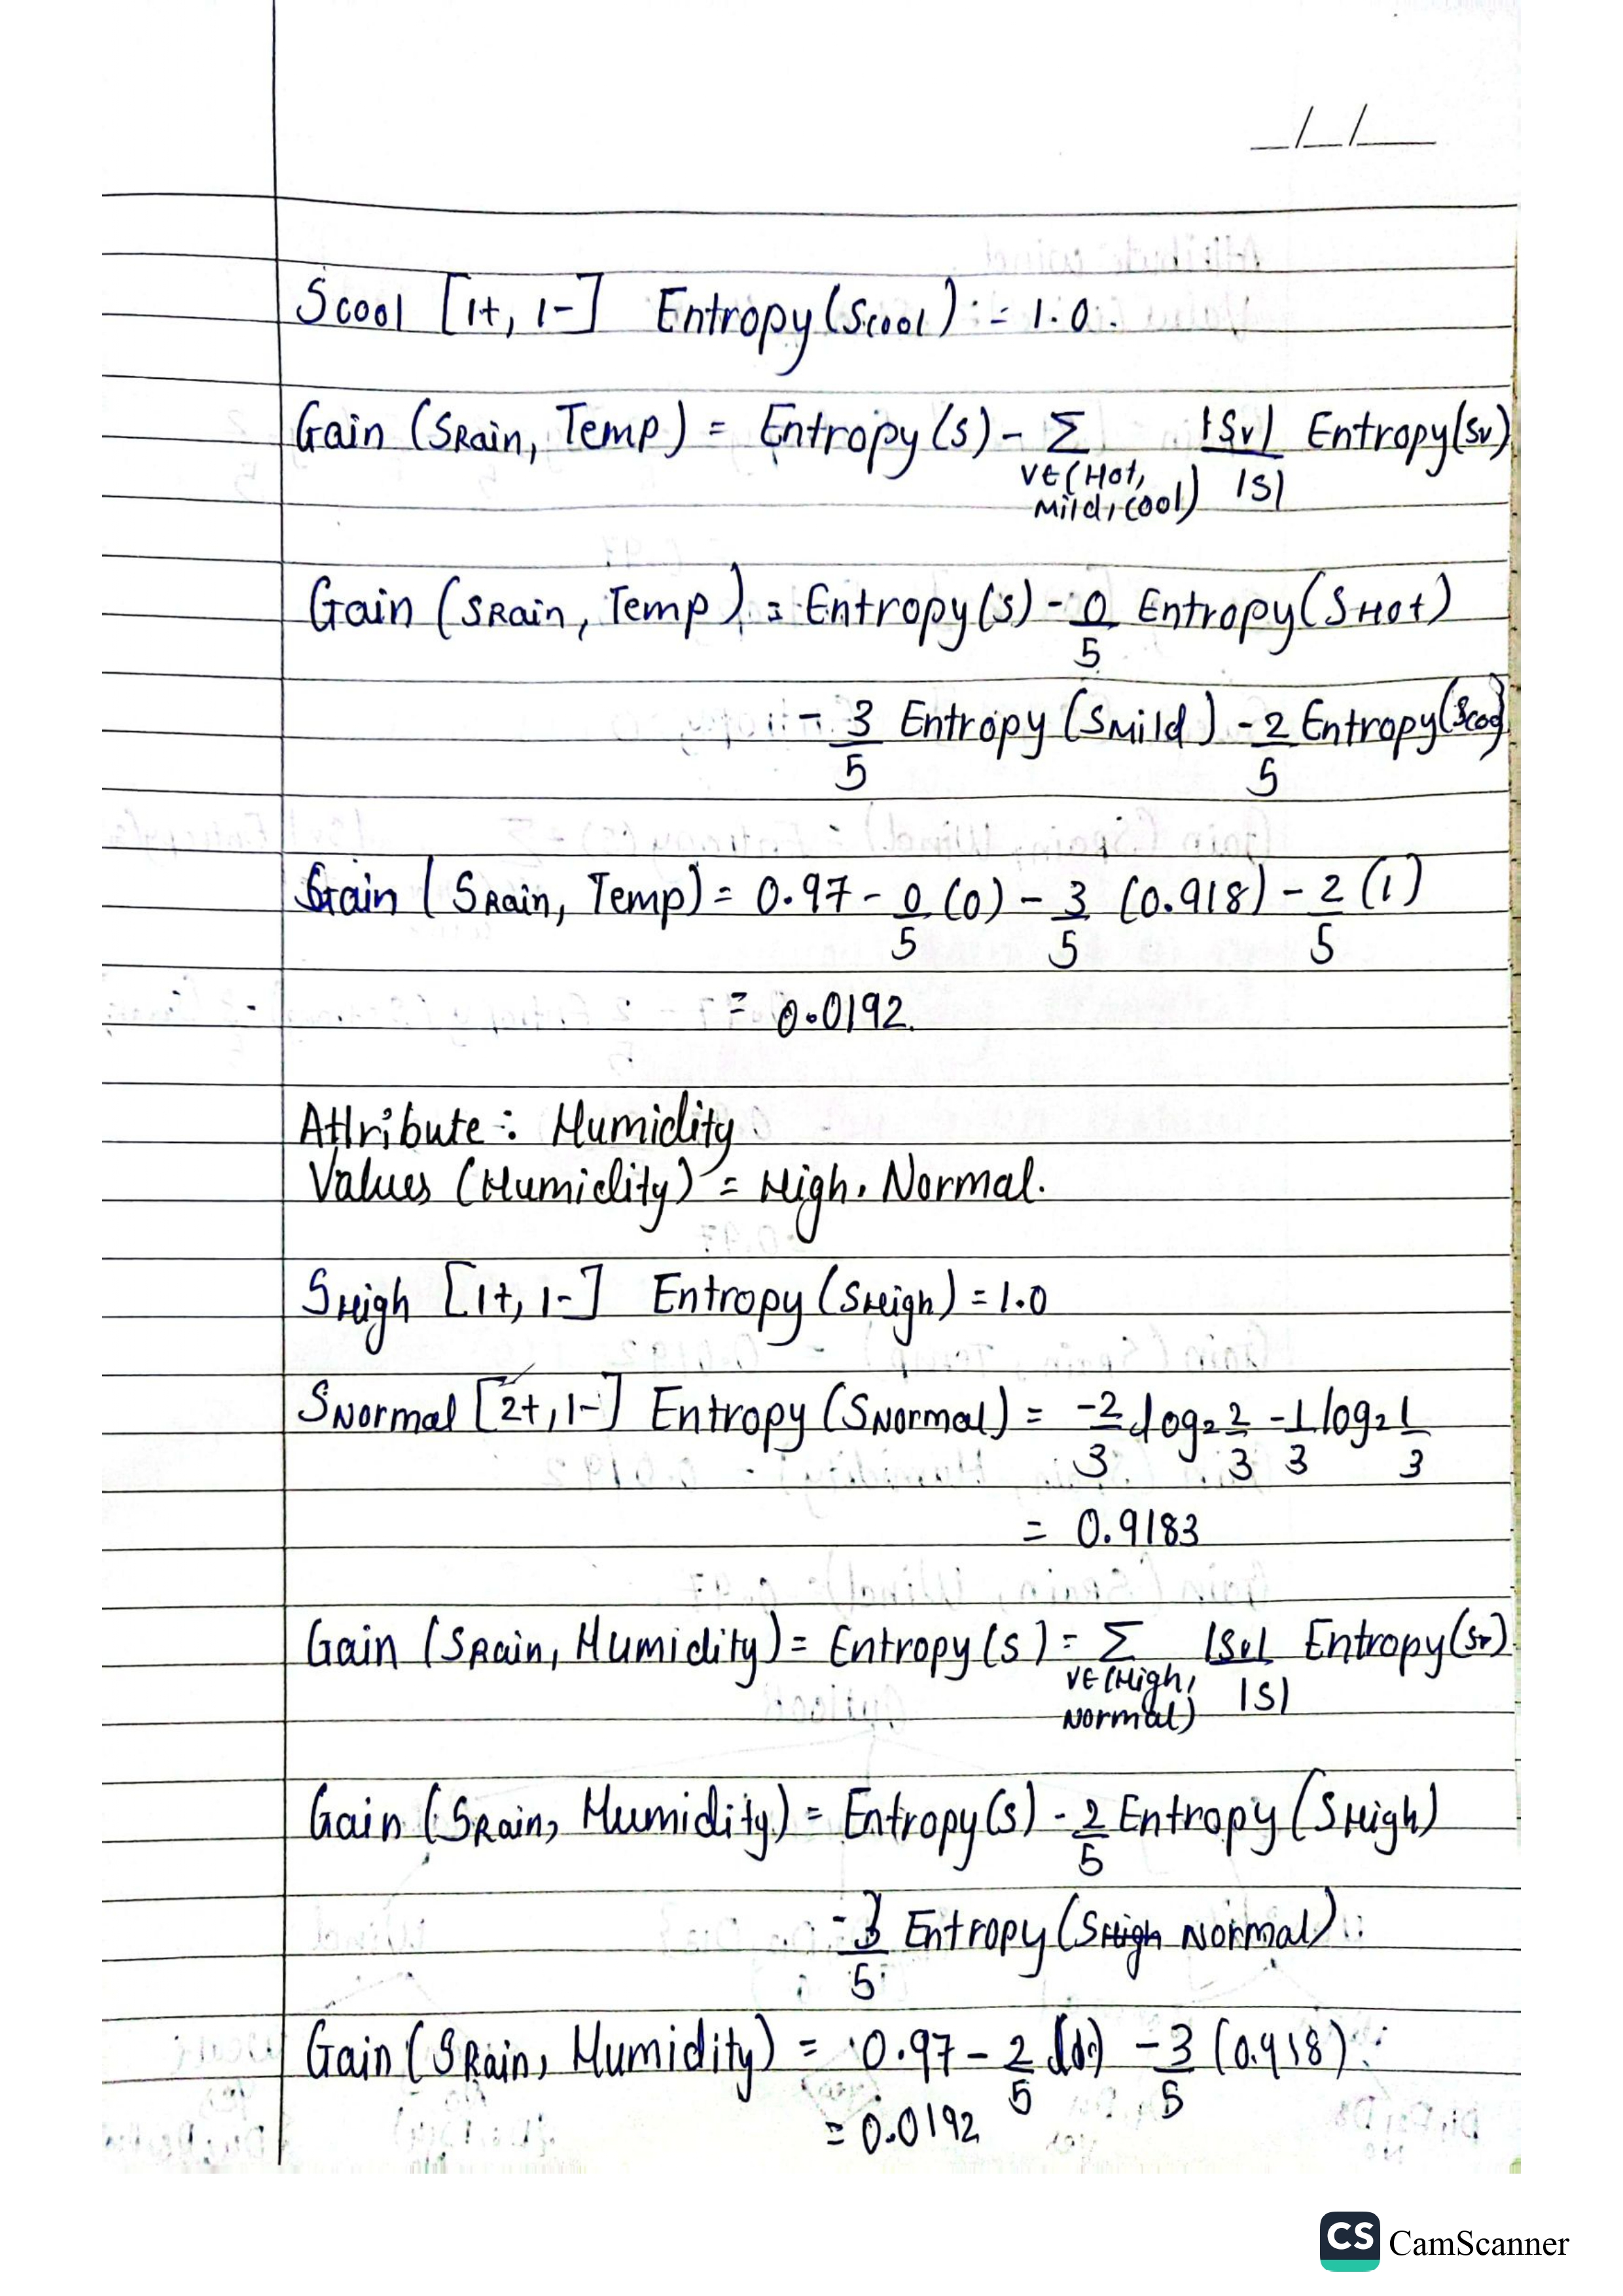 __/__/____
Scool [1+, 1-] Entropy(Scool) := 1.0.
Gain (SRain, Temp) = Entropy(S) - Σ |Sv| Entropy(Sv)
vε(Hot, |S|
Mild, Cool)
Gain (SRain, Temp) = Entropy(S) - 0 Entropy(SHot)
5
- 3 Entropy (SMild) - 2 Entropy(Scool)
5 5
Gain (SRain, Temp) = 0.97 - 0 (0) - 3 (0.918) - 2 (1)
5 5 5
= 0.0192.
Attribute : Humidity
Values (Humidity) = High, Normal.
SHigh [1+, 1-] Entropy (SHigh) = 1.0
SNormal [2+, 1-] Entropy (SNormal) = -2 log2 2 - 1 log2 1
3 3 3 3
= 0.9183
Gain (SRain, Humidity) = Entropy (S) = Σ |Sv| Entropy(Sv)
vε(High, |S|
Normal)
Gain (SRain, Humidity) = Entropy(S) - 2 Entropy (SHigh)
5
- 3 Entropy (SHigh Normal)
5
Gain (SRain, Humidity) = 0.97 - 2 (1) - 3 (0.918)
5 5
= 0.0192
CS CamScanner